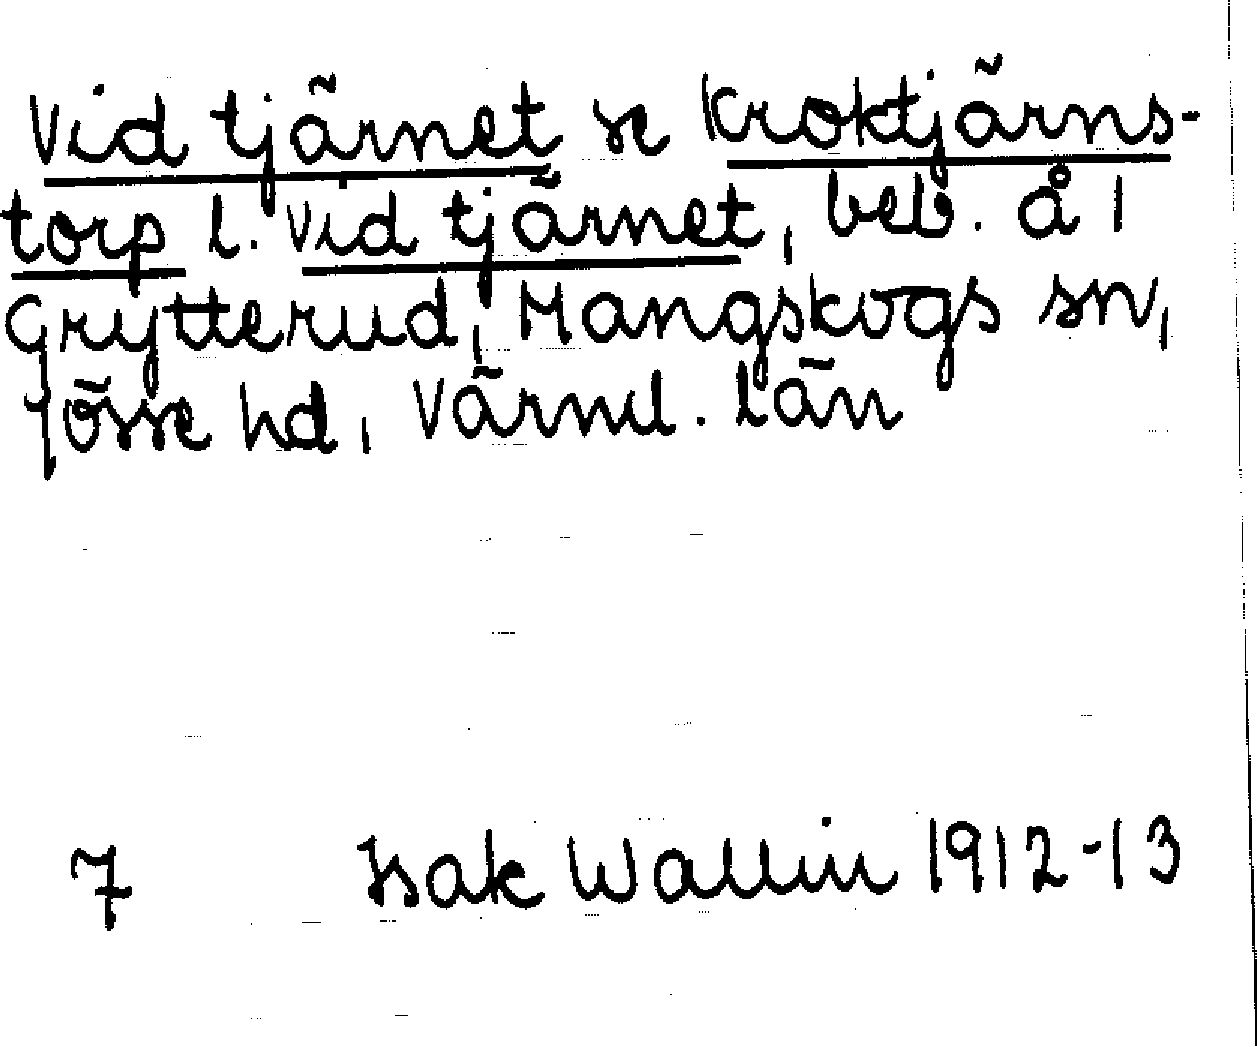 Vid tjärnet se Kroktjärns-
torp l. Vid tjärnet, beb. å 1
Grytterud, Mangskogs sn,
Jösse hd, Värml. län
7 Isak Wallin 1912-13